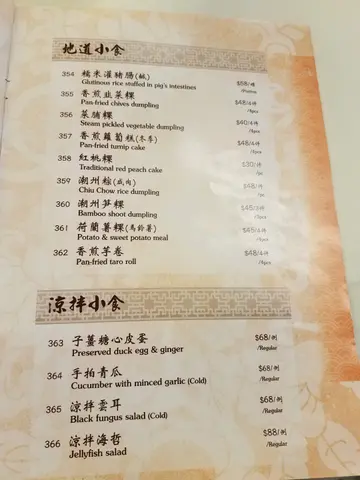 地道小食
354 糯米灌豬腸(鹹) $68/件
Glutinous rice stuffed in pig's intestines
355 香煎韭菜粿 $48/4件
Pan-fried chives dumpling /4pcs
356 菜脯粿 $40/4件
Steam pickled vegetable dumpling /4pcs
357 香煎蘿蔔糕(冬季) $48/4件
Pan-fried turnip cake
358 紅桃粿 $30/件
Traditional red peach cake /pc
359 潮州粽(咸肉) $48/件
Chiu Chow rice dumpling /pc
360 潮州笋粿
Bamboo shoot dumpling
361 荷蘭薯粿(馬鈴薯) $45/4件
Potato & sweet potato meal /4pcs
362 香煎芋卷 $48/4件
Pan-fried taro roll /4pcs
涼拌小食
363 子薑糖心皮蛋 $68/例
Preserved duck egg & ginger /Regular
364 手拍青瓜 $68/例
Cucumber with minced garlic (Cold) /Regular
365 涼拌雲耳 $68/例
Black fungus salad (Cold) /Regular
366 涼拌海哲 $88/例
Jellyfish salad /Regular